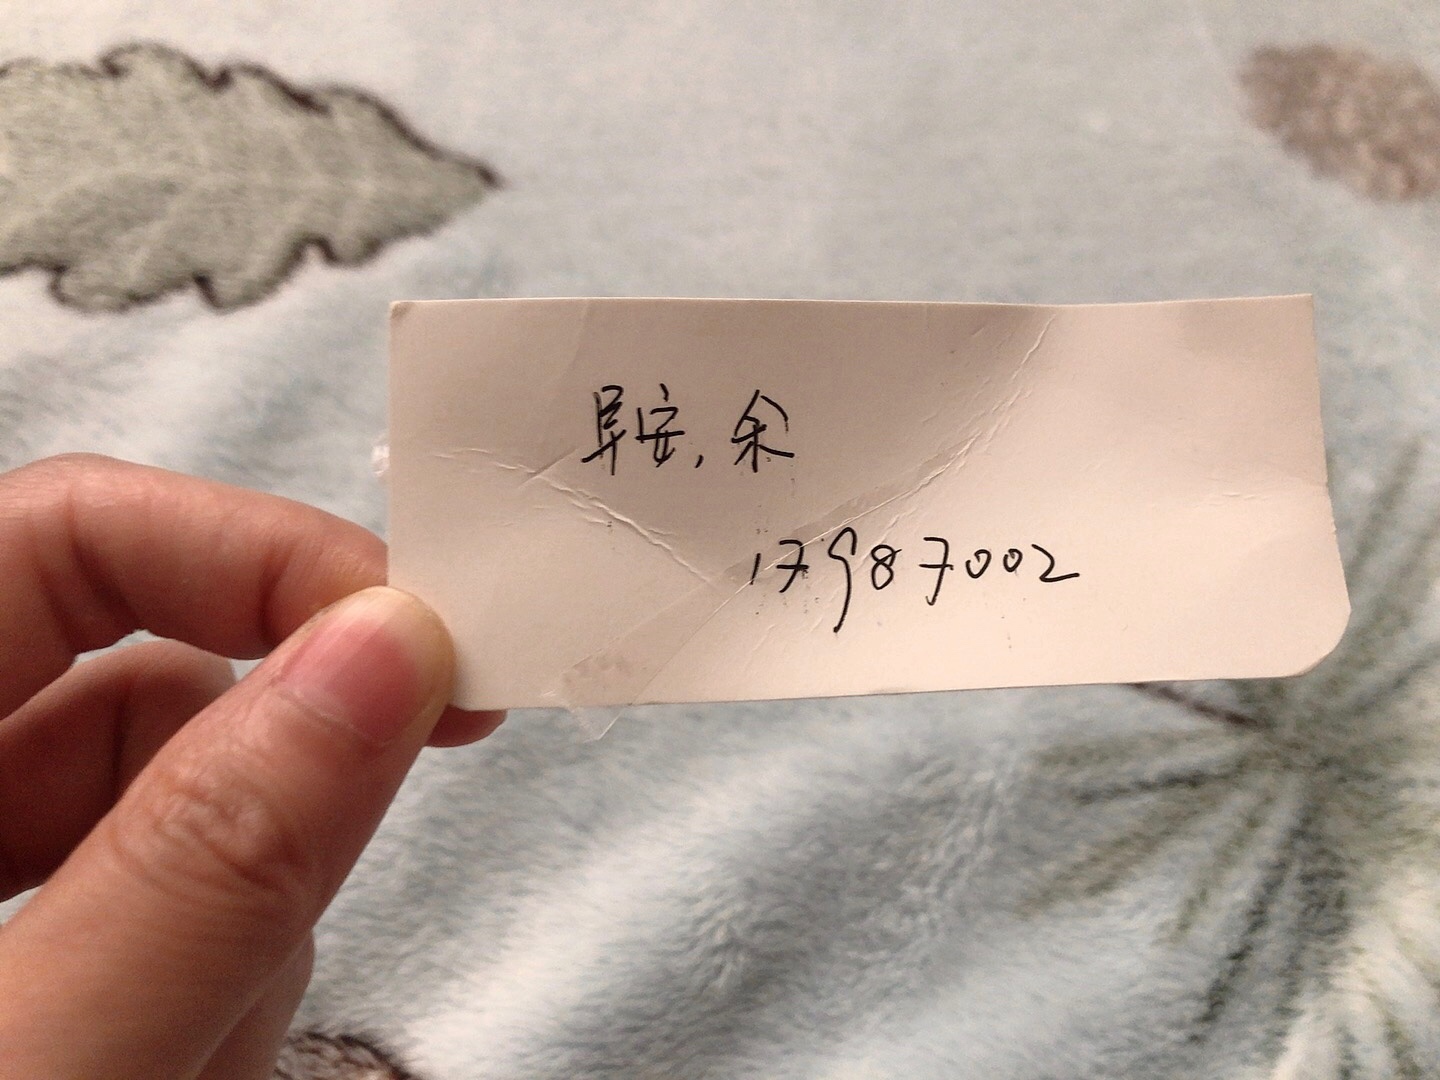 早安,余
17987002